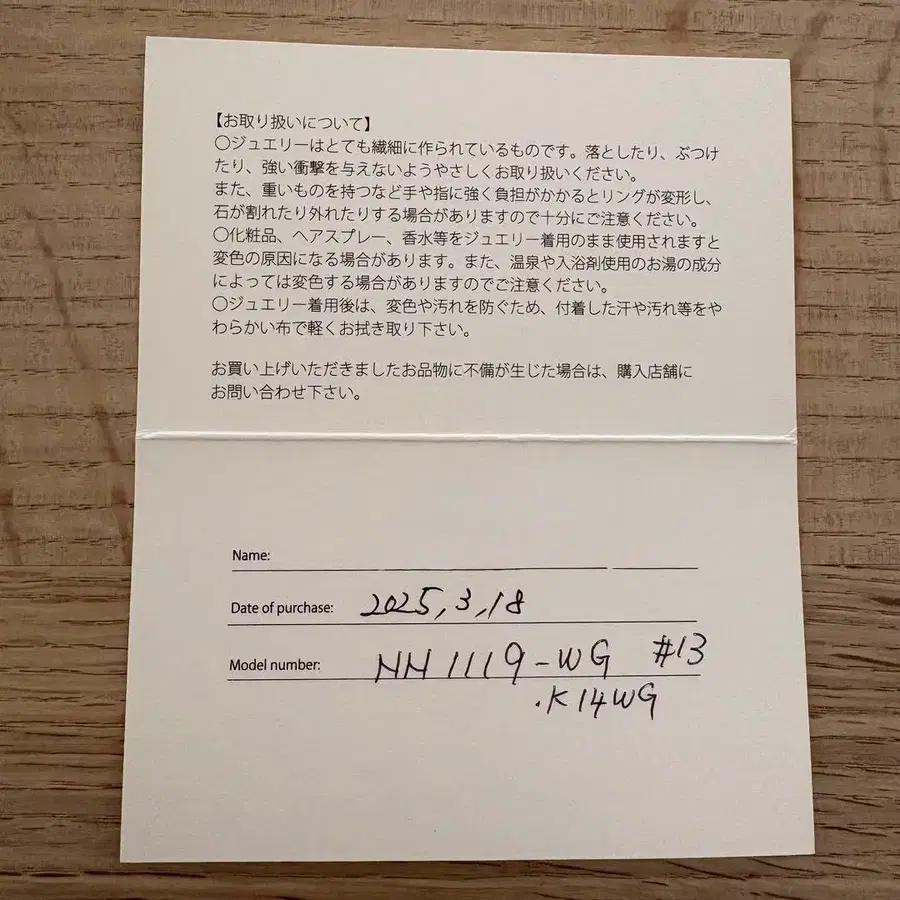 【お取り扱いについて】
○ジュエリーはとても繊細に作られているものです。落としたり、ぶつけ
たり、強い衝撃を与えないようやさしくお取り扱いください。
また、重いものを持つなど手や指に強く負担がかかるとリングが変形し、
石が割れたり外れたりする場合がありますので十分にご注意ください。
○化粧品、ヘアスプレー、香水等をジュエリー着用のまま使用されますと
変色の原因になる場合があります。また、温泉や入浴剤使用のお湯の成分
によっては変色する場合がありますのでご注意ください。
○ジュエリー着用後は、変色や汚れを防ぐため、付着した汗や汚れ等をや
わらかい布で軽くお拭き取り下さい。
お買い上げいただきましたお品物に不備が生じた場合は、購入店舗に
お問い合わせ下さい。
Name:
Date of purchase: 2025,3,18
Model number: NH1119-WG #13
.K14WG